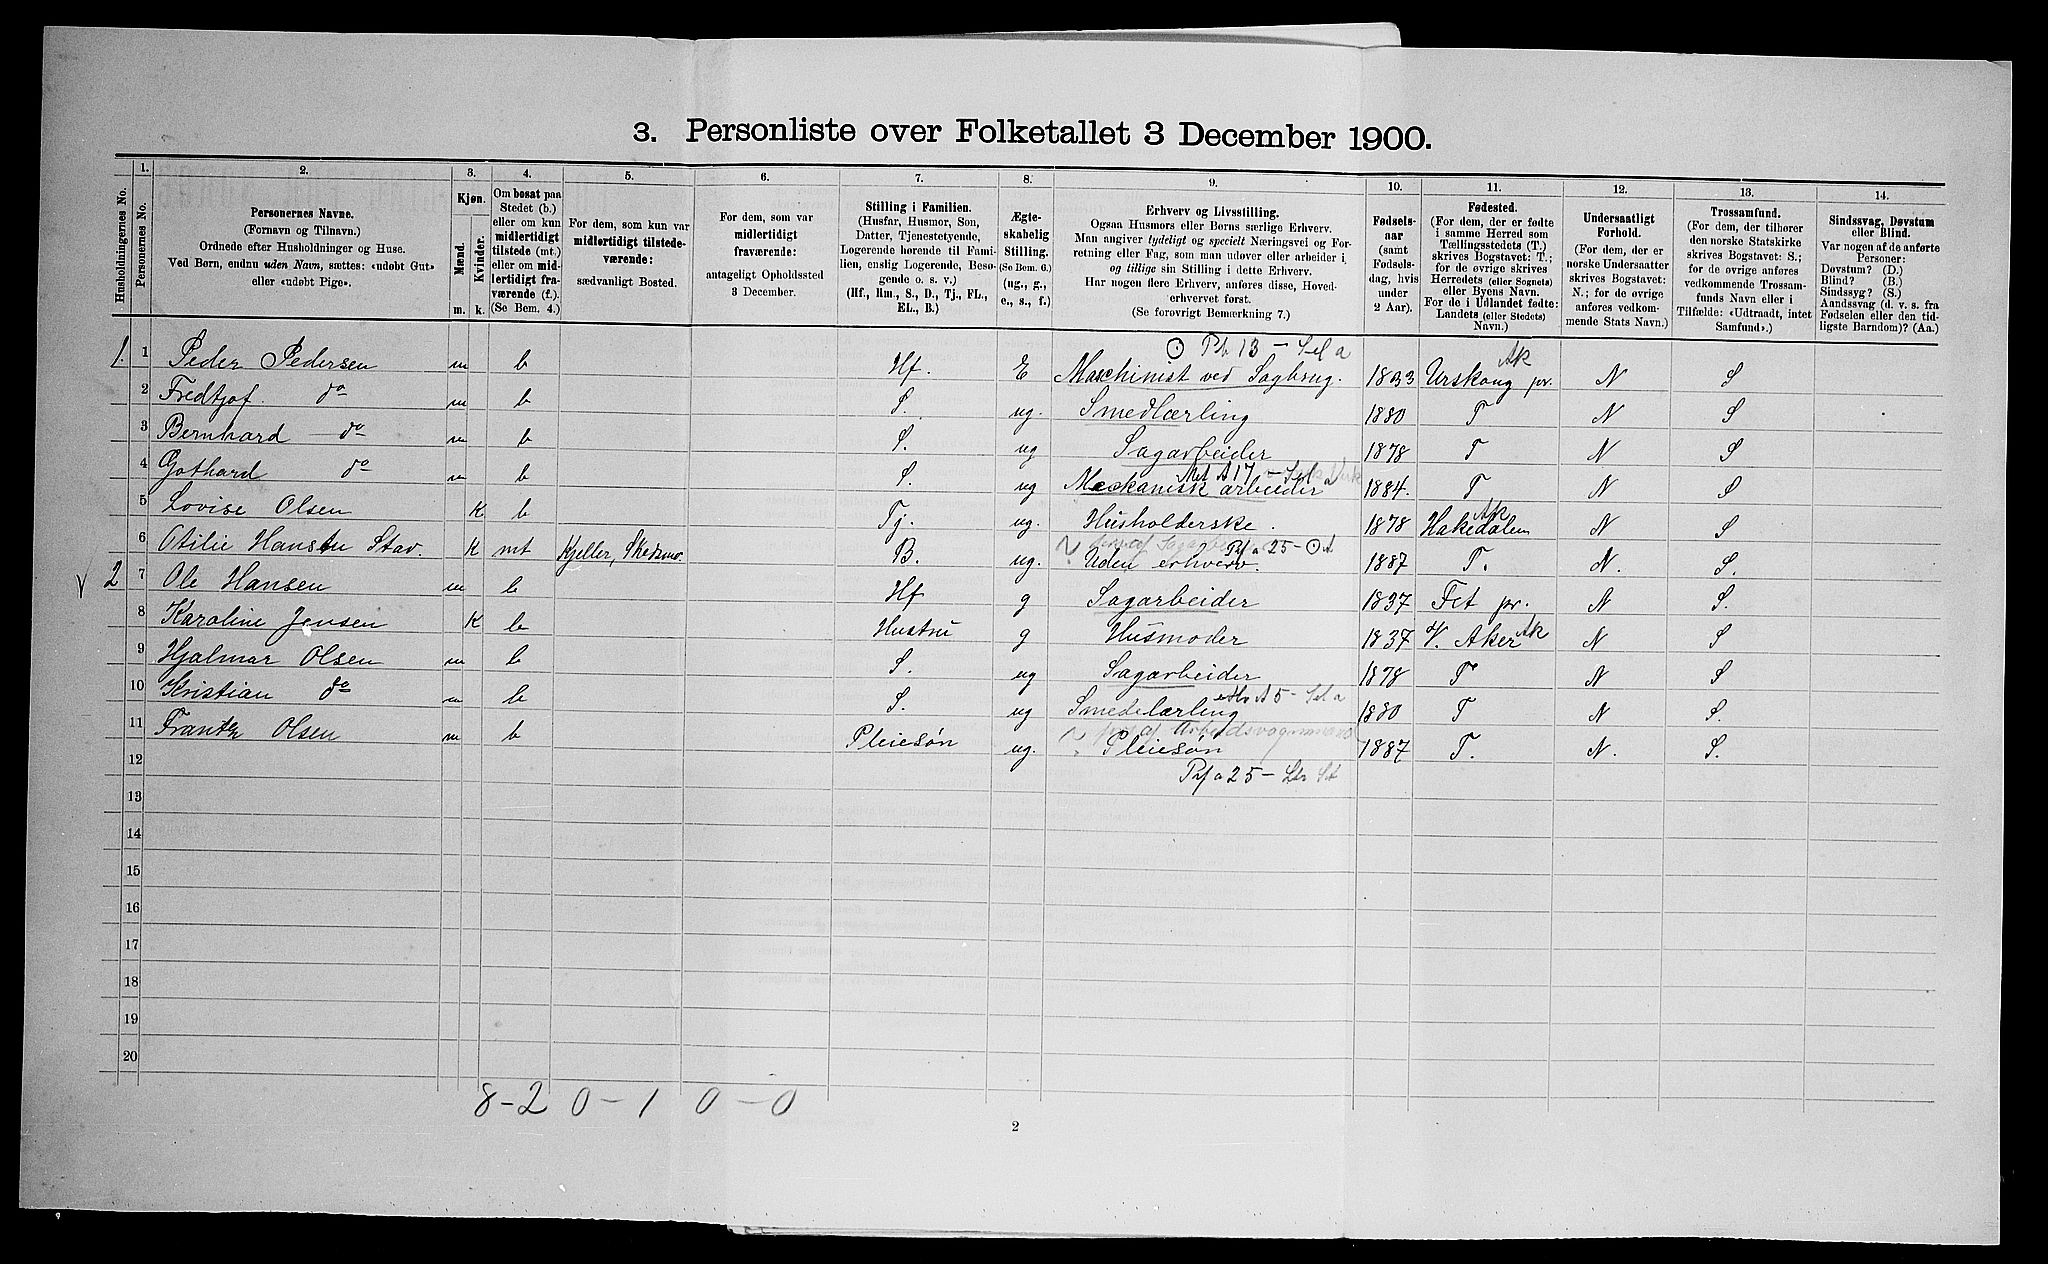 3. Personliste over Folketallet 3 December 1900.
1. 2. 3. 4. 5. 6. 7. 8. 9. 10. 11. 12. 13. 14.
Husholdningernes No.
Personernes No.
Personernes Navne.
(Fornavn og Tilnavn.)
Ordnede efter Husholdninger og Huse.
Ved Børn, endnu uden Navn, sættes: «udøbt Gut»
eller «udøbt Pige».
Kjøn.
Mænd. Kvinder.
m. k.
Om bosat paa
Stedet (b.)
eller om kun
midlertidigt
tilstede (mt.)
eller om mid-
lertidigt fra-
værende (f.).
(Se Bem. 4.)
For dem, som kun var
midlertidigt tilstede-
værende:
sædvanligt Bosted.
For dem, som var
midlertidigt
fraværende:
antageligt Opholdssted
3 December.
Stilling i Familien.
(Husfar, Husmor, Søn,
Datter, Tjenestetyende,
Logerende hørende til Fami-
lien, enslig Logerende, Besø-
gende o. s. v.)
(Hf., Hm., S., D., Tj., FL.,
EL., B.)
Ægte-
skabelig
Stilling.
(Se Bem. 6.)
(ug., g.,
e., s., f.)
Erhverv og Livsstilling.
Ogsaa Husmors eller Børns særlige Erhverv.
Man angiver tydeligt og specielt Næringsvei og For-
retning eller Fag, som man udøver eller arbeider i
og tillige sin Stilling i dette Erhverv.
Har nogen flere Erhverv, anføres disse, Hoved-
erhvervet først.
(Se forøvrigt Bemerkning 7.)
Fødsels-
aar
(samt
Fødsels-
dag, hvis
under
2 Aar).
Fødested.
(For dem, der er fødte
i samme Herred som
Tællingsstedets (T.)
skrives Bogstavet: T.;
for de øvrige skrives
Herredets (eller Sognets)
eller Byens Navn.
For de i Udlandet fødte:
Landets (eller Stedets)
Navn.)
Undersaatligt
Forhold.
(For dem, der er
norske Undersaatter
skrives Bogstavet:
N.; for de øvrige
anføres vedkom-
mende Stats Navn.)
Trossamfund.
(For dem, der tilhører
den norske Statskirke
skrives Bogstavet: S.;
for de øvrige anføres
vedkommende Trossam-
funds Navn eller i
Tilfælde: «Udtraadt, intet
Samfund».)
Sindssvag, Døvstum
eller Blind.
Var nogen af de anførte
Personer:
Døvstum? (D.)
Blind? (B.)
Sindssyg? (S.)
Aandssvag (d. v. s. fra
Fødselen eller den tid-
ligste Barndom)? (Aa.)
1. 1 Peder Pedersen m b Hf. E Maschinist ved Sagbrug. 1833 Urskoug pr. Ak N S
2 Fredtjof do m b S. ug. Smedlærling 1880 T N S
3 Bernhard do m b S. ug Sagarbeider 1878 T N S
4 Gothard do m b S. ug Mechanisk arbeider 1884. T N S
5 Lovise Olsen K b Tj. ug. Husholderske. 1878 Hakedalen Ak N S
6 Otilie Hansen Stav. K mt Kjeller, Skedsmo. B. ug. Uden erhverv. 1887 T. N. S.
2 7 Ole Hansen m b Hf g Sagarbeider 1837 Fet pr. N S.
8 Karoline Jensen K b Hustru g Husmoder 1837 V. Aker Ak N S
9 Hjalmar Olsen m b S. ug Sagarbeider 1878 T N S
10 Kristian do m b S. ug Smedelærling 1880 T N S.
11 Frantz Olsen m b Pleiesøn ug. Pleiesøn 1887 T. N. S.
12
13
14
15
16
17
18
19
20
8-2 0-1 0-0
2